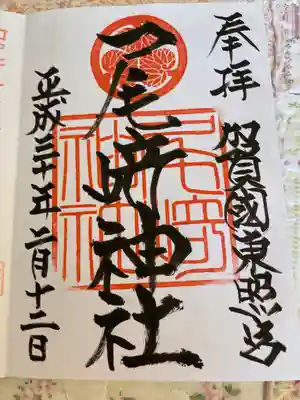 奉拝
加賀國東照宮
尾﨑神社
平成三十一年二月十二日